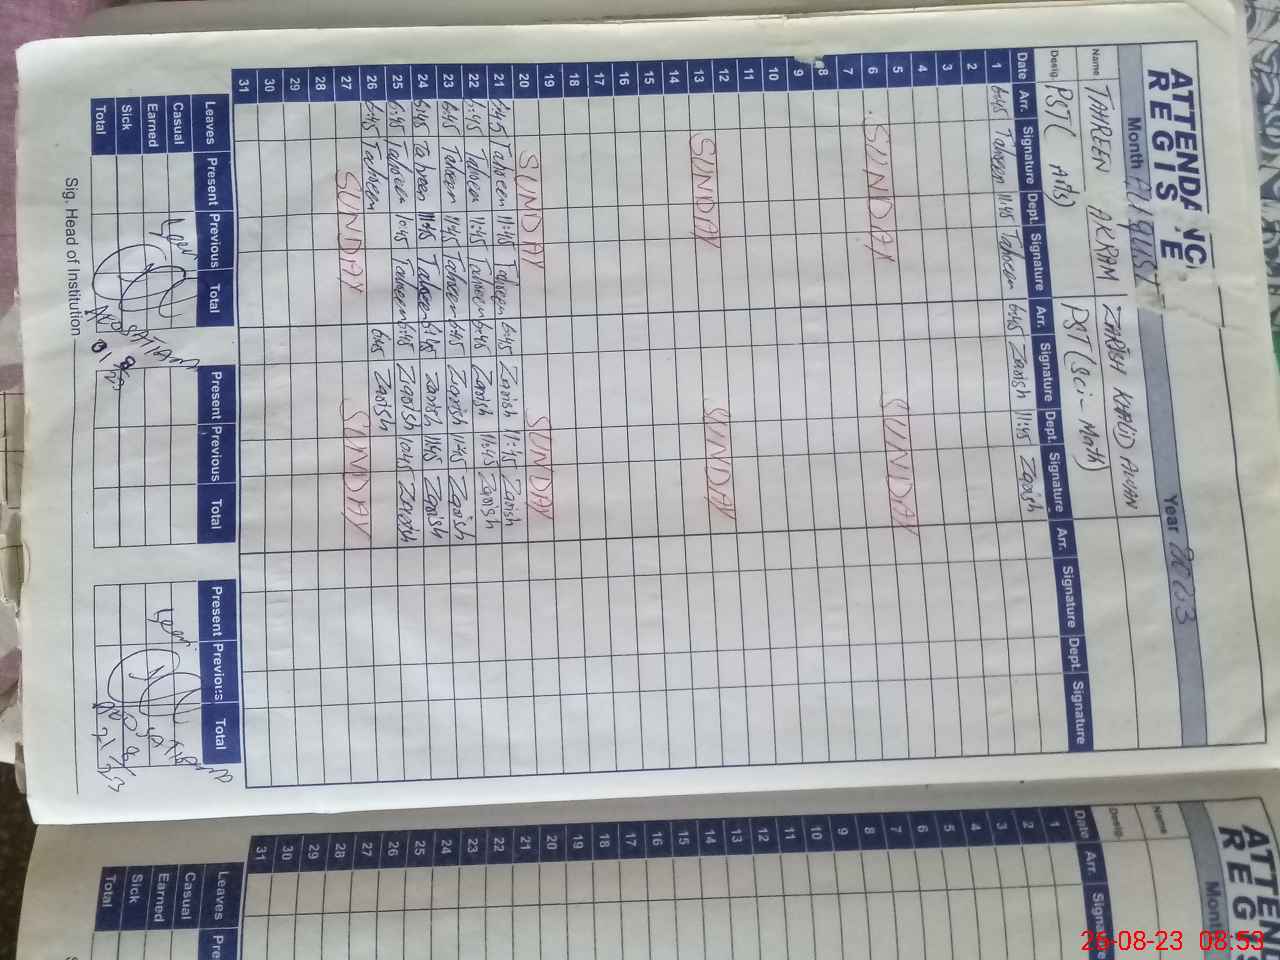 ATTENDANC
REGIS E
Month AUGUST Year 2023
Name TAHREEN AKRAM ZARISH KHALID AWAN
Desig. PST ( Arts) PST (Sci-Math)
Date Arr. Signature Dept. Signature Arr. Signature Dept. Signature Arr. Signature Dept. Signature
1 6:45 Tahreen 11:45 Tahreen 6:45 Zarish 11:45 Zarish
2
3
4
5
6 SUNDAY SUNDAY
7
8
9
10
11
12
13 SUNDAY SUNDAY
14
15
16
17
18
19
20 SUNDAY SUNDAY
21 6:45 Tahreen 11:45 Tahreen 6:45 Zarish 11:45 Zarish
22 6:45 Tahreen 11:45 Tahreen 6:45 Zarish 11:45 Zarish
23 6:45 Tahreen 11:45 Tahreen 6:45 Zarish 11:45 Zarish
24 6:45 Tahreen 11:45 Tahreen 6:45 Zarish 11:45 Zarish
25 6:45 Tahreen 10:45 Tahreen 6:45 Zarish 10:45 Zarish
26 6:45 Tahreen 6:45 Zarish
27 SUNDAY SUNDAY
28
29
30
31
Leaves Present Previous Total Present Previous Total Present Previous Total
Casual
Earned
Sick
Total
Seen
Seen
Sig. Head of Institution
ATTEN
REG
Mont
Name
Desig.
Date Arr. Signa
1
2
3
4
5
6
7
8
9
10
11
12
13
14
15
16
17
18
19
20
21
22
23
24
25
26
27
28
29
30
31
Leaves Pre
Casual
Earned
Sick
Total
26-08-23 08:53